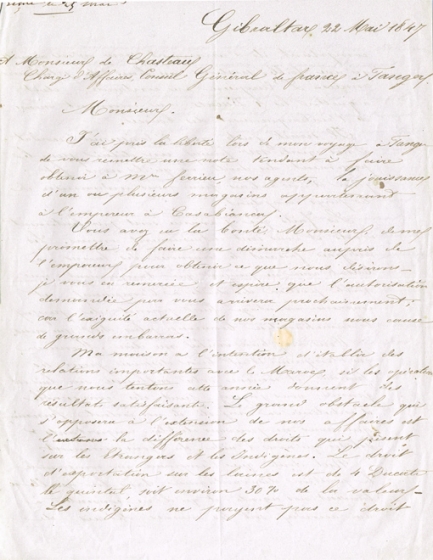 Gibraltar 22 Mai 1847
A Monsieur de Chasteau
Chargé d'Affaires, Consul Général de france à Tanger
Monsieur.
J'ai pris la liberté lors de mon voyage à Tanger
de vous remettre une note tendant à faire
obtenir à Mr ferrieu nos agents, la jouissance
d'un ou plusieurs magasins appartenant
à l'empereur à Casablanca.
Vous avez eu la bonté Monsieur de me
promettre de faire une démarche auprès de
l'empereur pour obtenir ce que nous désirons
je vous en remercie et espère que l'autorisation
demandée par vous arrivera prochainement;
car l'exiguité actuelle de nos magasins nous cause
de grands embarras.
Ma maison a l'intention d'établir des
relations importantes avec le Maroc, si les opérations
que nous tentons cette année donnent des
résultats satisfaisants. Le grand obstacle qui
s'opposera à l'extension de nos affaires est
la différence des droits qui pèsent
sur les Etrangers et les Indigènes. Le droit
d'exportation sur les laines est de 4 Ducats
le quintal soit environ 30% de la valeur
Les indigènes ne payent pas ce droit